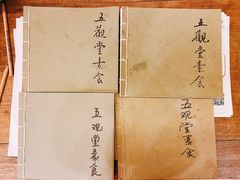 五觀堂素食
五觀堂素食
五观堂素食
五观堂素食